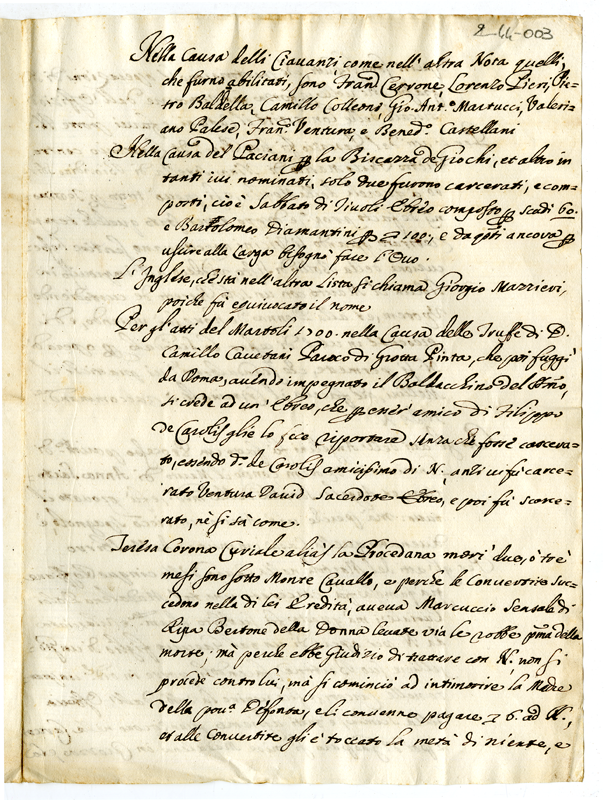 2-44-003
Nella Causa delli Ciavanzi, come nell'altra Nota quelli,
che furno abilitati, sono Fran.o Cerrone, Lorenzo Pieri, Pie=
tro Baldella, Camillo Colleoni, Gio. Ant.o Martucci, Valeri=
ano Palese, Fran.o Ventura, e Bened.o Castellani
Nella Causa del Paciani la Biscazza de Giochi, et altro in
tanti ivi nominati, solo due furono carcerati, e com=
posti, cioè Sabbato di Tivoli Ebreo composto scudi 60.
e Bartolomeo Diamantini 100., e da ancora
usure alla Larga bisognò face
L'Inglese, che stà nell'altra Lista si chiama Giorgio Mazzieri,
poiche fù equivocato il nome
Per gl'atti del Martoli 1700. nella Causa delle Truffe di D.
Camillo Caietani Paroco di Grotta Pinta, che poi fuggì
da Roma, avendo impegnato il Baldacchino del
si crede ad un' Ebreo, che esser' amico di Filippo
de Carolis glie lo fece riportare senza che fosse carcera=
to, essendo d.o de Carolis amicissimo di N., anzi vi fù carce=
rato Ventura David Sacerdote Ebreo, e poi fù scarce=
rato, nè si sà come.
Teresa Corona Curiale aliàs la Procedana morì due, ò trè
mesi sono sotto Monte Cavallo, e perche le Convertite suc=
cedono nella di lei Eredità, aveva Marcuccio Sensale di
Ripa Bertone della Donna levate via le robbe p.ma della
morte, mà perche ebbe Giudizio di trattare con N., non si
procedè contro lui, mà si cominciò ad intimorire la Madre
della pov.a Defonta, e li convenne pagare 6. ad N.,
et alle Convertite gli è toccato la metà di niente, e